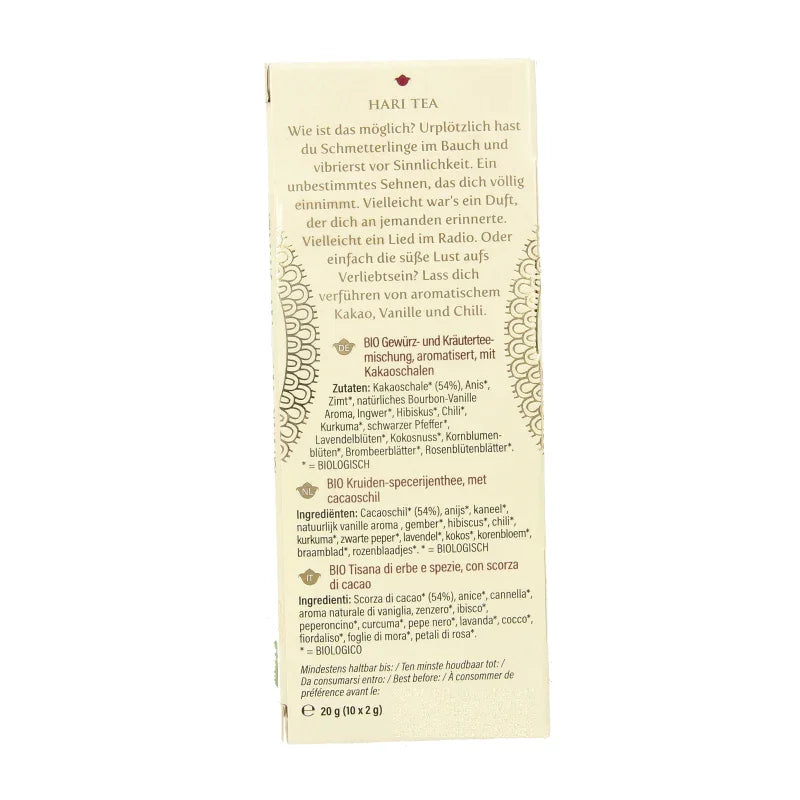 HARI TEA
Wie ist das möglich? Urplötzlich hast
du Schmetterlinge im Bauch und
vibrierst vor Sinnlichkeit. Ein
unbestimmtes Sehnen, das dich völlig
einnimmt. Vielleicht war's ein Duft,
der dich an jemanden erinnerte.
Vielleicht ein Lied im Radio. Oder
einfach die süße Lust aufs
Verliebtsein? Lass dich
verführen von aromatischem
Kakao, Vanille und Chili.
DE BIO Gewürz- und Kräutertee-
mischung, aromatisert, mit
Kakaoschalen
Zutaten: Kakaoschale* (54%), Anis*,
Zimt*, natürliches Bourbon-Vanille
Aroma, Ingwer*, Hibiskus*, Chili*,
Kurkuma*, schwarzer Pfeffer*,
Lavendelblüten*, Kokosnuss*, Kornblumen-
blüten*, Brombeerblätter*, Rosenblütenblätter*.
* = BIOLOGISCH
NL BIO Kruiden-specerijenthee, met
cacaoschil
Ingrediënten: Cacaoschil* (54%), anijs*, kaneel*,
natuurlijk vanille aroma , gember*, hibiscus*, chili*,
kurkuma*, zwarte peper*, lavendel*, kokos*, korenbloem*,
braamblad*, rozenblaadjes*. * = BIOLOGISCH
IT BIO Tisana di erbe e spezie, con scorza
di cacao
Ingredienti: Scorza di cacao* (54%), anice*, cannella*,
aroma naturale di vaniglia, zenzero*, ibisco*,
peperoncino*, curcuma*, pepe nero*, lavanda*, cocco*,
fiordaliso*, foglie di mora*, petali di rosa*.
* = BIOLOGICO
Mindestens haltbar bis: / Ten minste houdbaar tot: /
Da consumarsi entro: / Best before: / À consommer de
préférence avant le:
℮ 20 g (10 x 2 g)